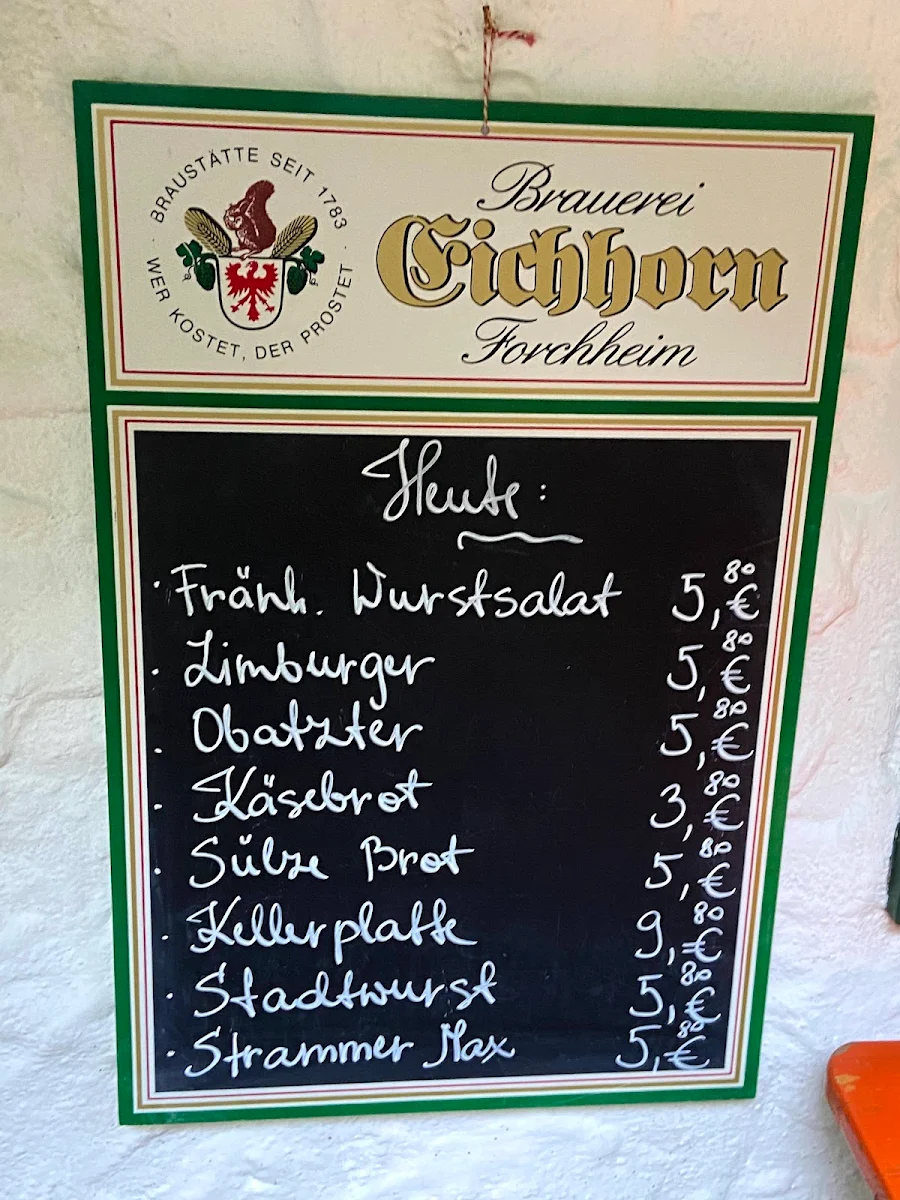 BRAUSTÄTTE SEIT 1783
WER KOSTET, DER PROSTET
Brauerei
Eichhorn
Forchheim
Heute:
· Fränk. Wurstsalat 5,80 €
· Limburger 5,80 €
· Obatzter 5,80 €
· Käsebrot 3,80 €
· Sülze Brot 5,80 €
· Kellerplatte 9,80 €
· Stadtwurst 5,80 €
· Strammer Max 5,80 €